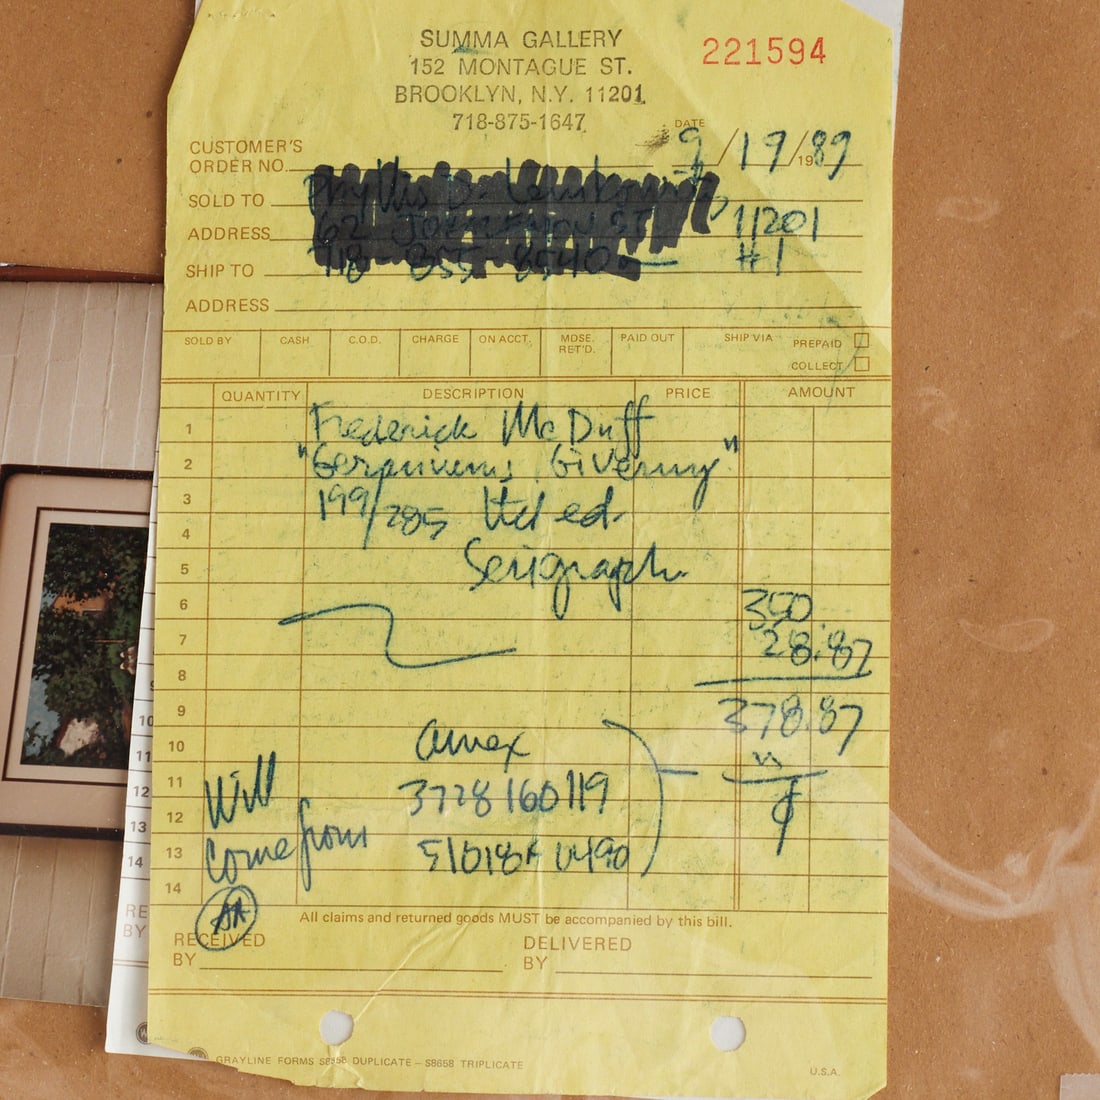 SUMMA GALLERY
152 MONTAGUE ST.
BROOKLYN, N.Y. 11201
718-875-1647
221594
DATE
9/19/1989
CUSTOMER'S
ORDER NO.
SOLD TO
ADDRESS 11201
SHIP TO #1
ADDRESS
SOLD BY CASH C.O.D. CHARGE ON ACCT. MDSE. RET'D. PAID OUT SHIP VIA PREPAID
COLLECT
QUANTITY DESCRIPTION PRICE AMOUNT
1 Frederick McDuff
2 Giverny"
3 199/285 ltd ed.
4
5 Serigraph
6 350
7 28.87
8
9 378.87
10 amex
11 Will
12
13 come from
14
AA
All claims and returned goods MUST be accompanied by this bill.
RECEIVED
BY
DELIVERED
BY
GRAYLINE FORMS DUPLICATE – S8658 TRIPLICATE
U.S.A.
9
10
11
12
13
14
RE
BY